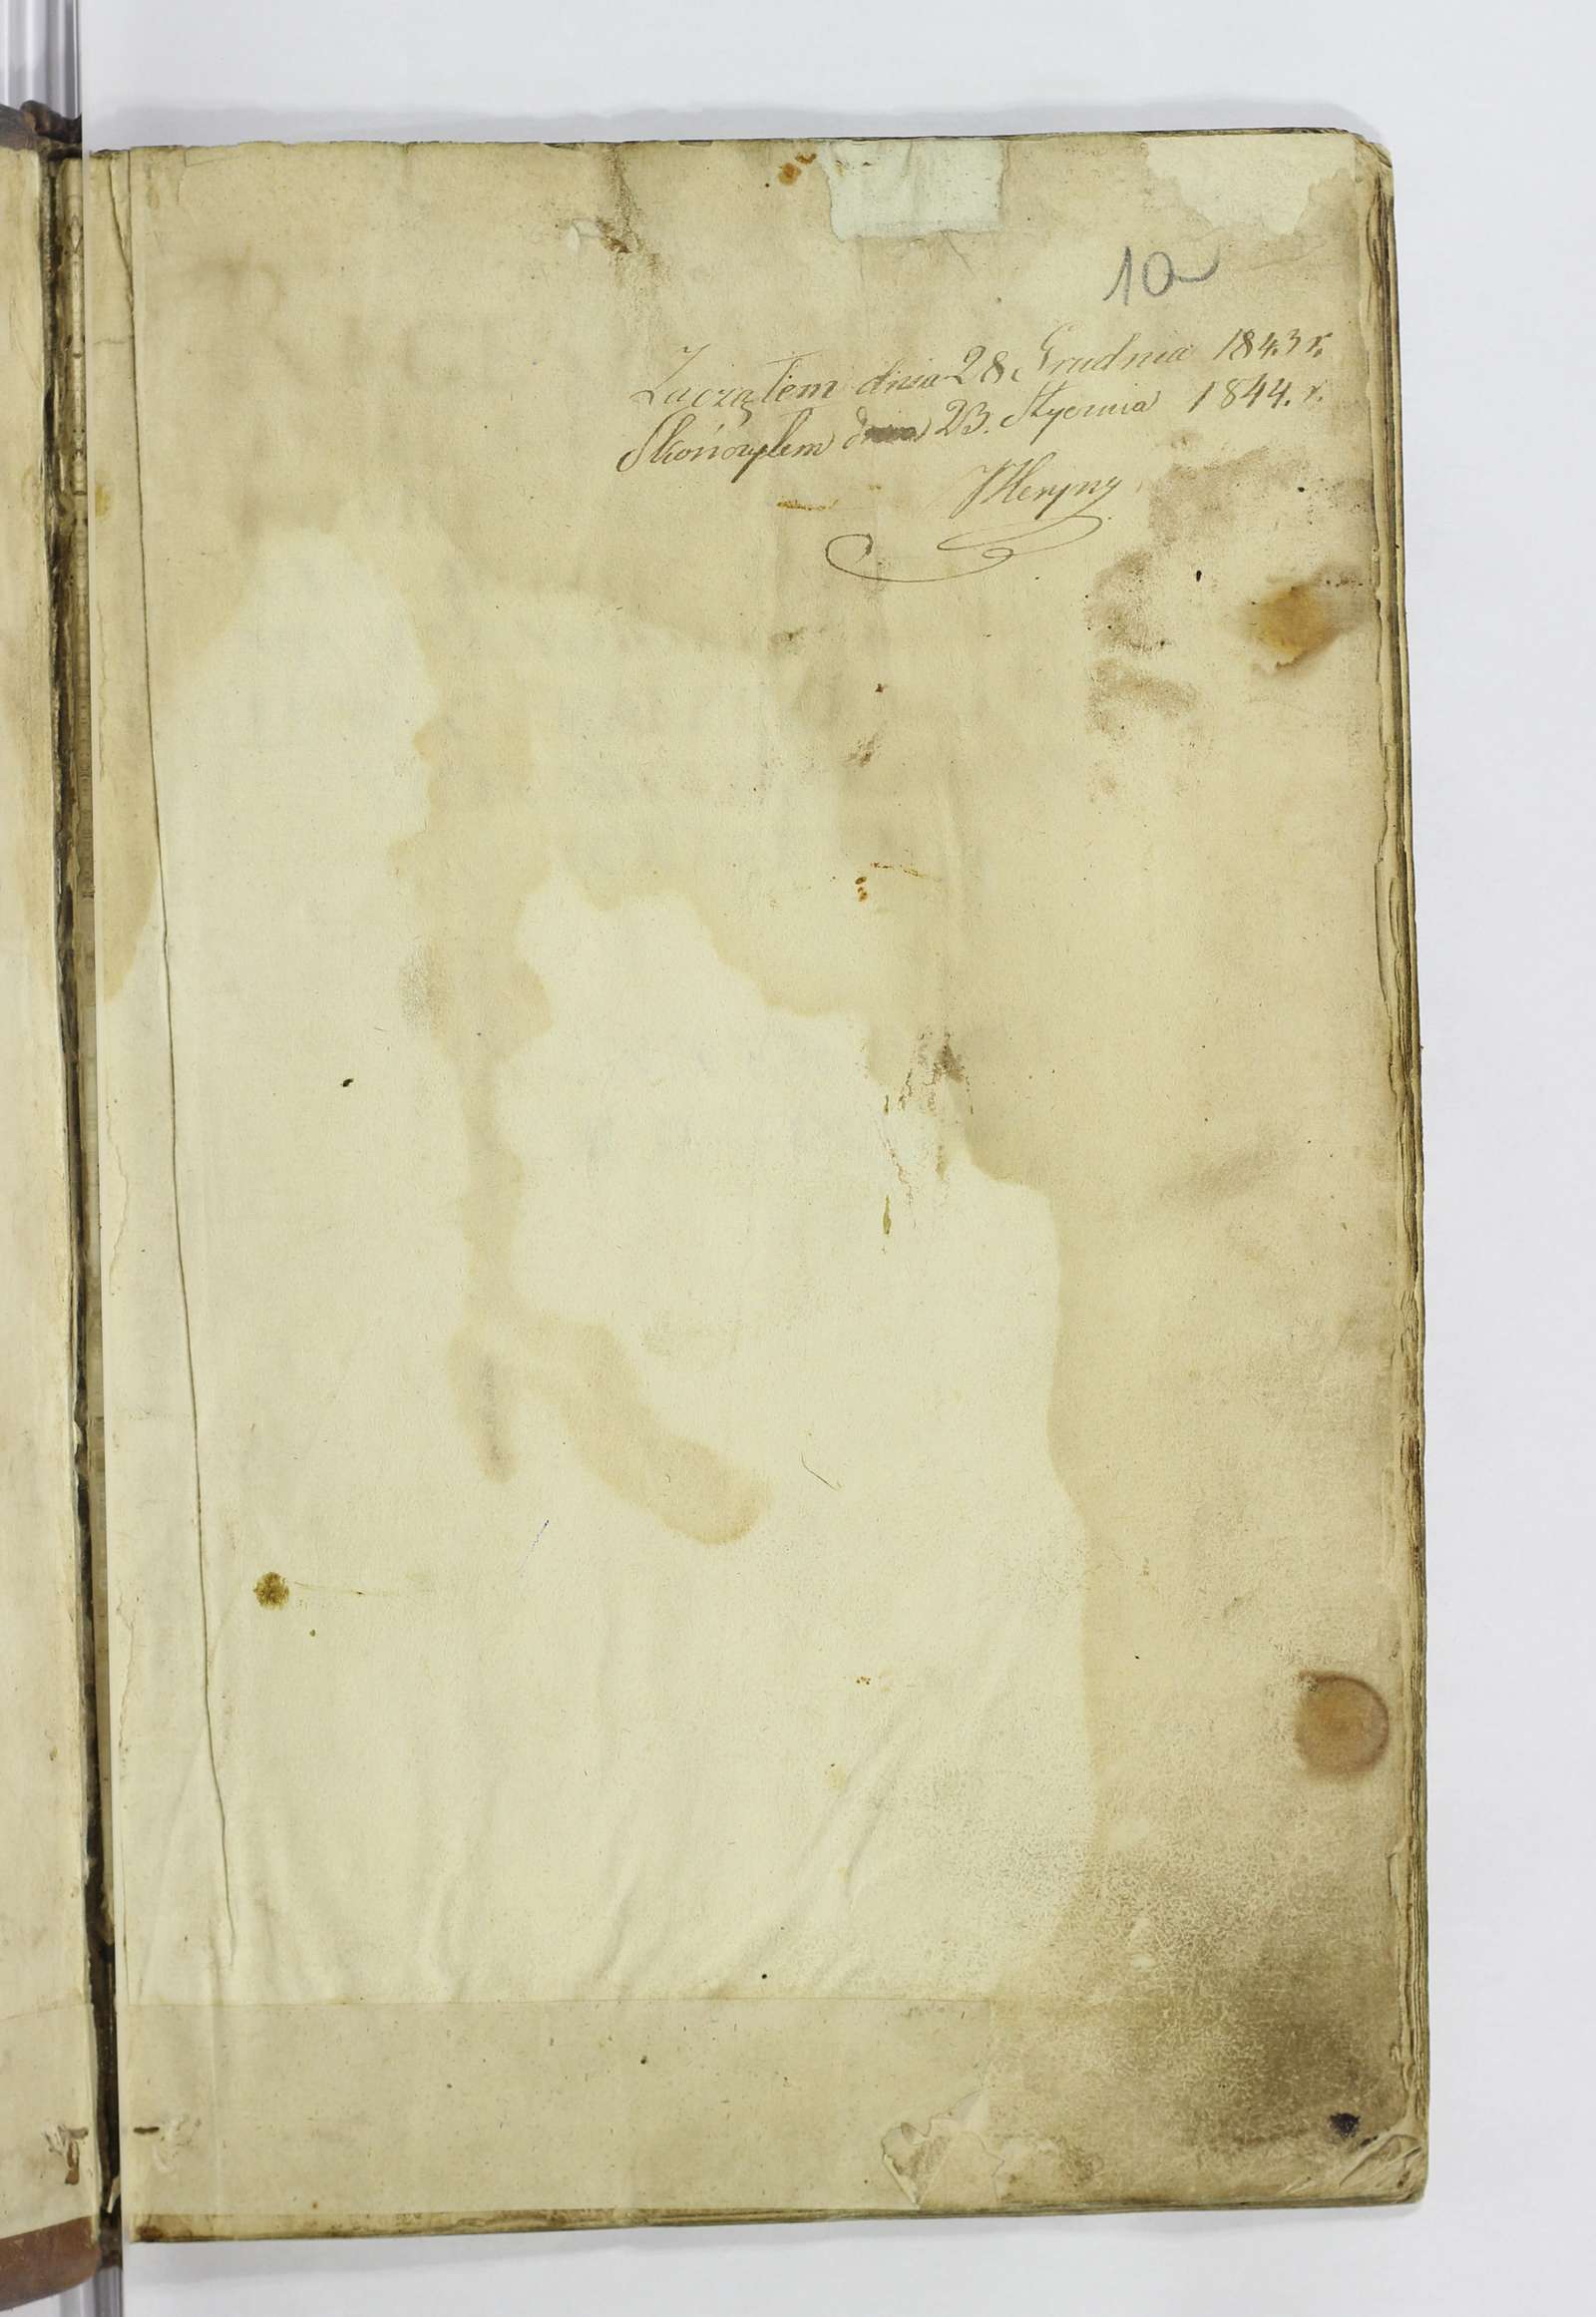 1a
Zacząłem dnia 28 Grudnia 1843 r.
Skończyłem dnia 23. Stycznia 1844. r.